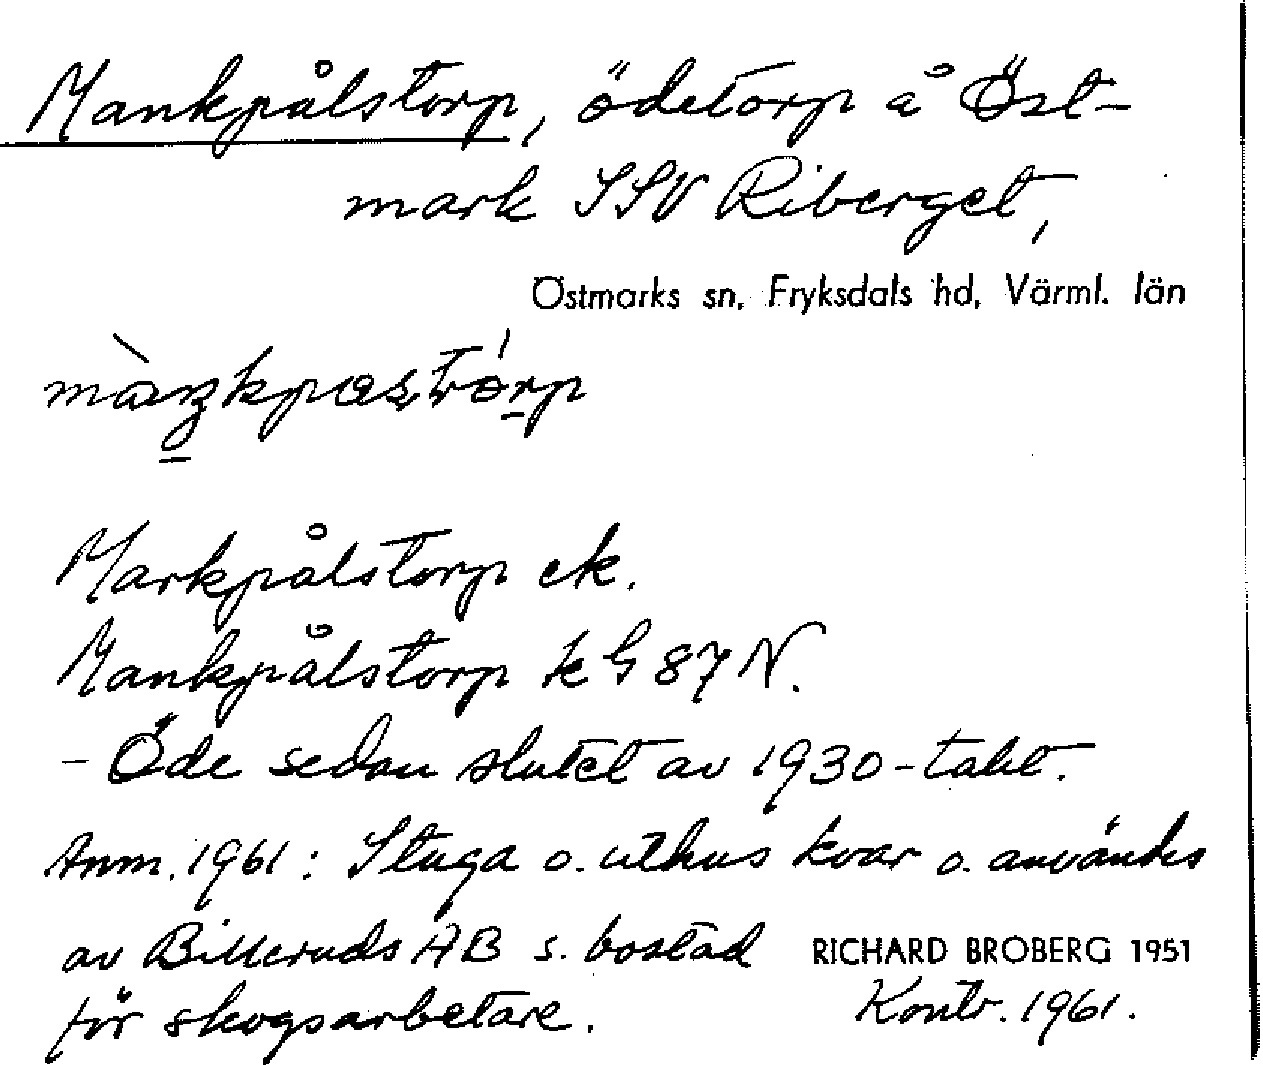 Mankpålstorp, ödetorp å Öst-
mark SSV Riberget,
Östmarks sn, Fryksdals hd, Värml. län
Markpålstorp ek.
Mankpålstorp k G 87 N.
- Öde sedan slutet av 1930-talet.
Anm. 1961: Stuga o. uthus kvar o. användes
av Billeruds AB s. bostad
för skogsarbetare.
RICHARD BROBERG 1951
Kontr. 1961.